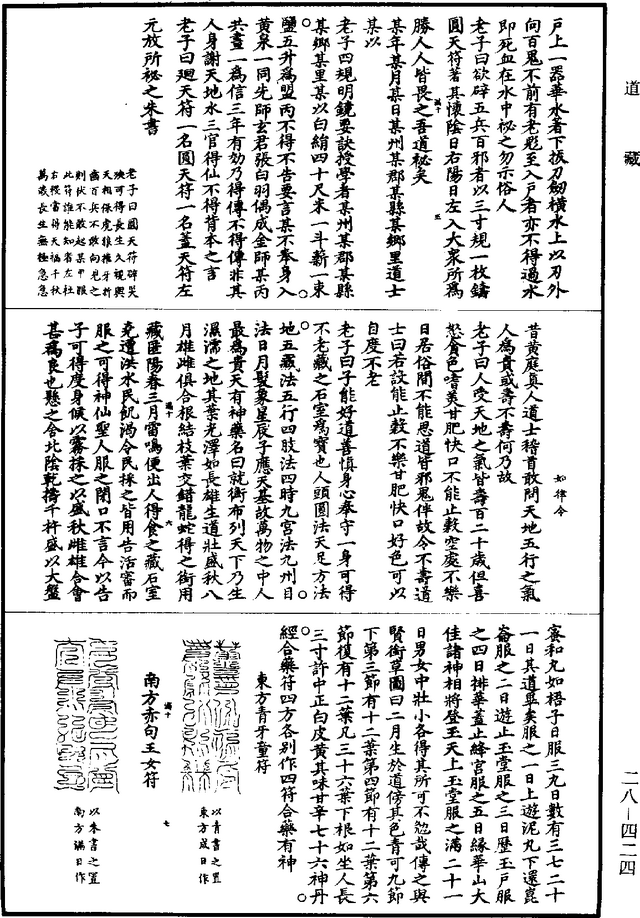 道藏
戶上一器華水著下拔刀劒橫水上以刃外
向百鬼不前有老魅王入戶者亦不得過水
即死血在水中祕之勿示俗人
老子曰欲辟五兵百邪者以三寸規一枚鑄
圓天符著其懷陰日右陽日左入大衆所爲
勝人人皆畏之吾道祕矣
某年某月某日某州某郡某縣某鄉里道士
某以
老子四規明鏡要訣授學者某州某郡某縣
某鄉某里某以白絹四十尺米一斗薪一束
鹽五升爲盟丙不得不告要言某不奉身入
黄泉一同先師玄君張白羽偶成金師某丙
共畫一爲信三年有効乃得傳不得傳非其
人身謝天地水三官得仙不得背本之言
老子曰廻天符一名圓天符一名蓋天符左
元放所祕之朱書
老子曰圓天符碑笑
殃可得長生久視與
天相保虎狼推牙折
齒百兵不敢向見之
則伏不敢起某甲服
此符誰能知者左社
右稷富得天福千秋
萬歲長生無極急急
如律令
昔黄庭真人道士稽首敢問天地五行之氣
人爲貴或壽不壽何乃故
老子曰人受天地之氣皆壽百二十歲但喜
怒貪色嗜美甘肥快口不能止穀空處不樂
日居俗間不能思道皆邪鬼伴故令不壽道
士曰若設能止穀不樂甘肥快口好色可以
自度不老
老子曰子能好道善慎身心奉守一身可得
不老藏之石室爲寳也人頭圓法天足方法
地五藏法五行四肢法四時九宮法九州目
法日月髮象星辰子應天基故萬物之中人
最爲貴天有神藥名曰就衘布列天下乃生
濕濡之地其葉光澤如長雄生道壯盛秋八
月雄雌俱合根結枝葉交錯龍蛇得之衘用
藏匿陽春三月雷鳴便出人得食之藏石室
堯遭洪水民飢渴令民採之皆用告活審而
服之可得神仙聖人服之閉口不言今以告
子可得度身候以霧採之以盛秋雌雄合會
甚爲良也懸之舍北陰乾擣千杵盛以大盤
蜜和丸如梧子日服三丸日數有三七二十
一日其道畢矣服之一日上遊泥丸下還崑
崙服之二日遊止玉堂服之三日歷玉戶服
之四日排華蓋止絳宮服之五日緣華山大
佳諸神相將登玉天上玉堂服之滿二十一
日男女中壯小各得其所可不勉哉傳之與
賢衘草圖曰二月生於道傍其色青可九節
下第三節有十二葉第四節有十二葉第六
節復有十二葉凡三十六葉下根如坐人長
三寸許中正白皮黄其味甘辛七十六神丹
經合藥符四方各別作四符合藥有神
東方青牙童符
以青書之置
東方成日作
南方赤句玉女符
以朱書之置
南方滿日作
二八—四二四